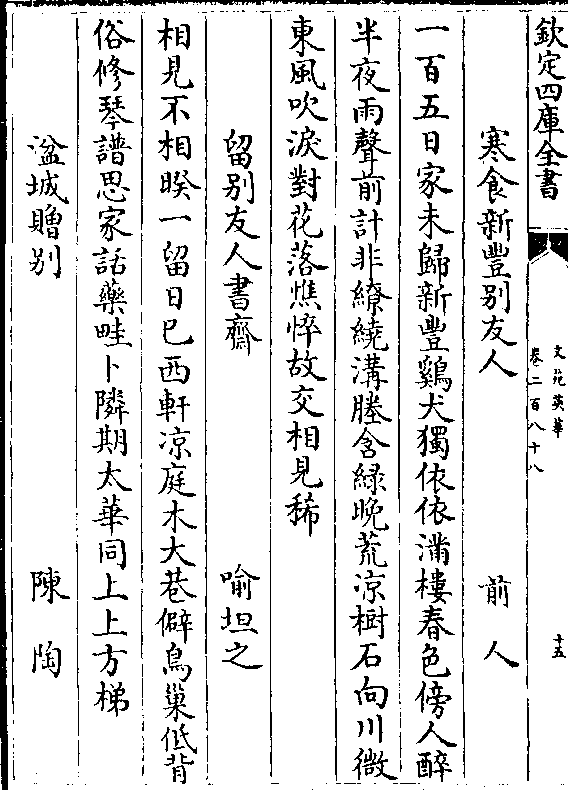 欽定四庫全書
文苑英華
卷二百八十八
十五
寒食新豐别友人 前人
一百五日家未歸新豐鷄犬獨依依滿樓春色傍人醉
半夜雨聲前計非繚繞溝塍含緑晚荒凉樹石向川微
東風吹淚對花落憔悴故交相見稀
留别友人書齋 喻坦之
相見不相睽一留日已西軒凉庭木大巷僻鳥巢低背
俗修琴譜思家話藥畦卜隣期太華同上上方梯
湓城贈别 陳陶